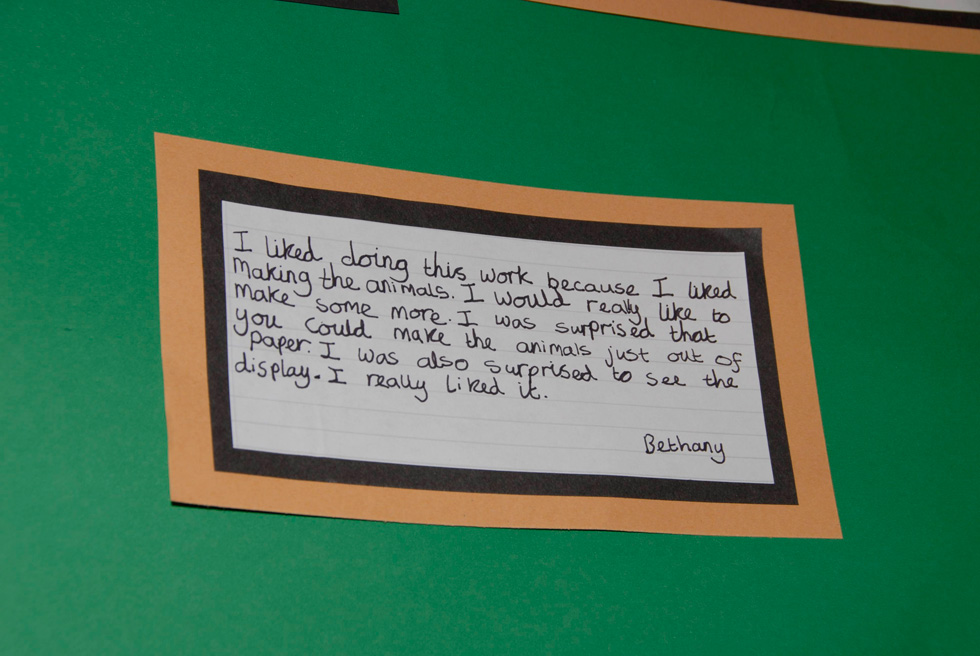 I liked doing this work because I liked
making the animals. I would really like to
make some more. I was surprised that
you could make the animals just out of
paper. I was also surprised to see the
display. I really liked it.
Bethany